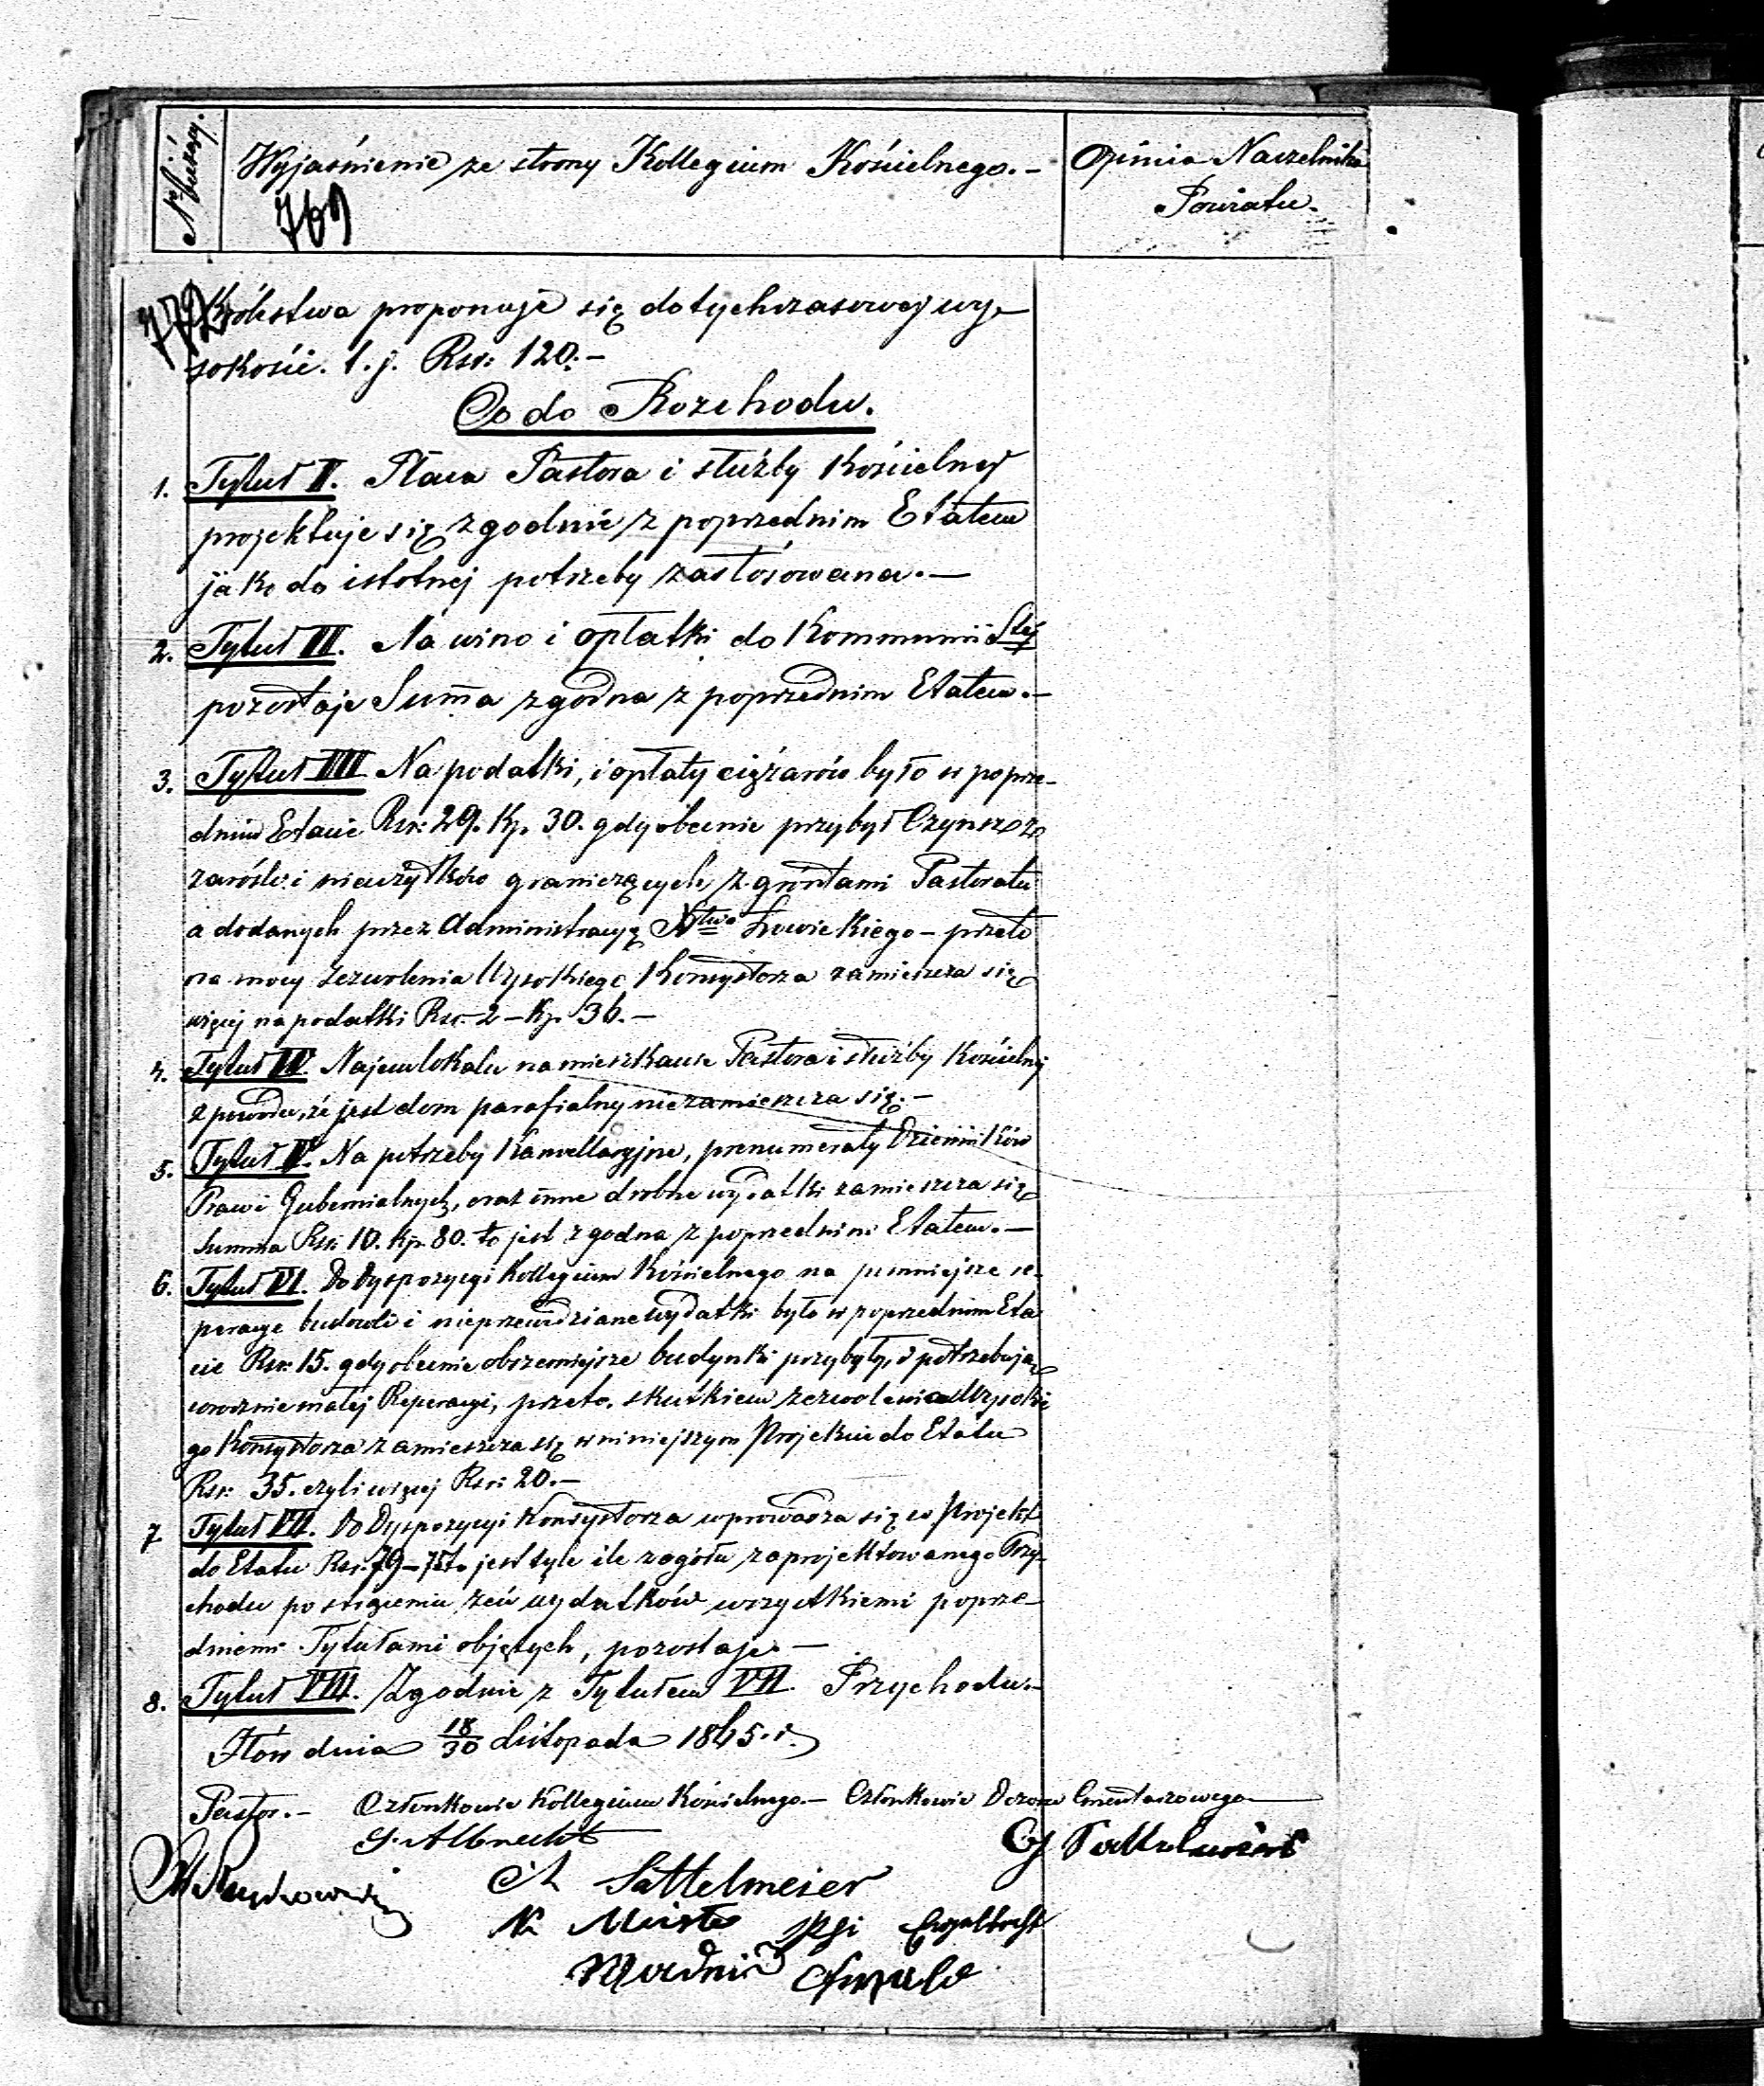 Nr bieżący.
Wyjaśnienie ze strony Kollegium Kościelnego. –
Opinia Naczelnika
Powiatu.
769
772
Królestwa proponuje się dotychczasowej wy-
sokości. t. j. Rsr: 120. –
Co do Rozchodu.
1. Tytuł I. Płaca Pastora i służby Kościelnej
projektuje się zgodnie z poprzednim Etatem
jako do istotnej potrzeby zastósowana. —
2. Tytuł II. Na wino i opłatki do Kommunii Stej
pozostaje Summa zgodna z poprzednim Etatem. —
3. Tytuł III Na podatki, i opłaty ciężarów było w poprze-
dnim Etacie Rsr: 29. Kp. 30. gdy obecnie przybył Czynsz z
zarośli i nieużytków graniczących z gróntami Pastoratu
a dodanych przez Administracyę Xtwa Łowickiego – przeto
na mocy zezwolenia Wysokiego Konsystorza zamieszcza się
więcej na podatki Rsr. 2 – Kp. 36. –
4. Tytuł IV Najem lokalu na mieszkanie Pastora i służby Kościelnej
z powodu, że jest dom parafialny niezamieszcza się. –
5. Tytuł V. Na potrzeby Kancellaryjne, prenumeraty Dzienników
Praw i Gubernialnych, oraz inne drobne wydatki zamieszcza się
Summa Rsr: 10. Kp. 80. to jest zgodna z poprzednim Etatem. —
6. Tytuł VI. Do Dyspozycyi Kollegium Kościelnego na pomniejsze re-
peracye budowli i nieprzewidziane wydatki było w poprzednim Eta
cie Rsr: 15. gdy obecnie obszerniejsze budynki przybyły, i potrzebują
corocznie małej Reperacyi, przeto, skutkiem zezwolenia Wysokie
go Konsystorza zamieszcza się w niniejszym Projekcie do Etatu
Rsr: 35. czyli więcej Rsr: 20. –
7 Tytuł VII. Do Dyspozycyi Konsystorza wprowadza się w Projekt
do Etatu Rsr. 79 – 75 to jest tyle ile z ogółu zaprojektowanego Przy-
chodu po strąceniu zeń wydatków wszystkiemi poprze-
dniemi Tytułami objętych, pozostaje. —
8. Tytuł VIII. Zgodnie z Tytułem VII. Przychodu. –
Iłów dnia 18/30 Listopada 1865. r.
Pastor. – Członkowie Kollegium Kościelnego. – Członkowie Dozoru Cmentarzowego
G. Albrecht
Sattelmeier